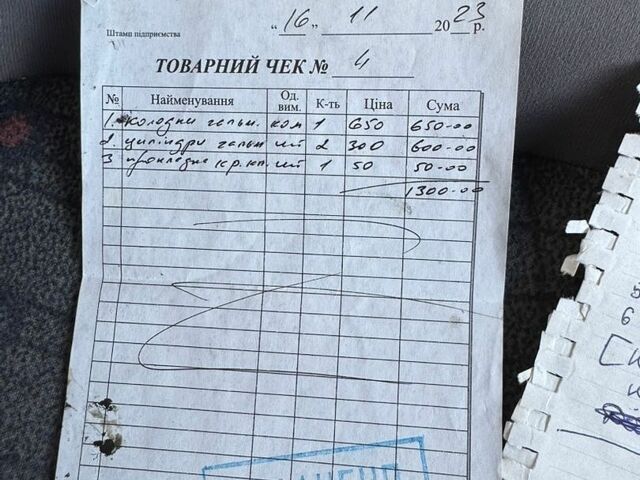 Штамп підприємства
"16" 11 2023 р.
ТОВАРНИЙ ЧЕК № 4
№ Найменування Од. вим. К-ть Ціна Сума
1. колодки гальм. ком 1 650 650-00
2. циліндри гальм шт 2 300 600-00
3 прокладка кр. кл. шт 1 50 50-00
1300-00